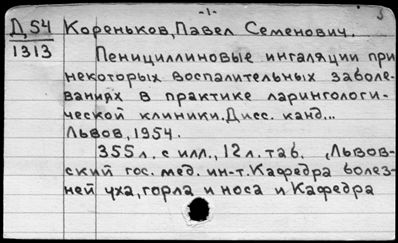 -1-
Д54 Кореньков, Павел Семенович.
1313
Пенициллиновые ингаляции при
некоторых воспалительных заболе-
ваниях в практике ларингологи-
ческой клиники. Дисс. канд...
Львов, 1954.
355 л. с илл., 12 л. таб. (Львов-
ский гос. мед. ин-т. Кафедра болез-
ней уха, горла и носа и Кафедра